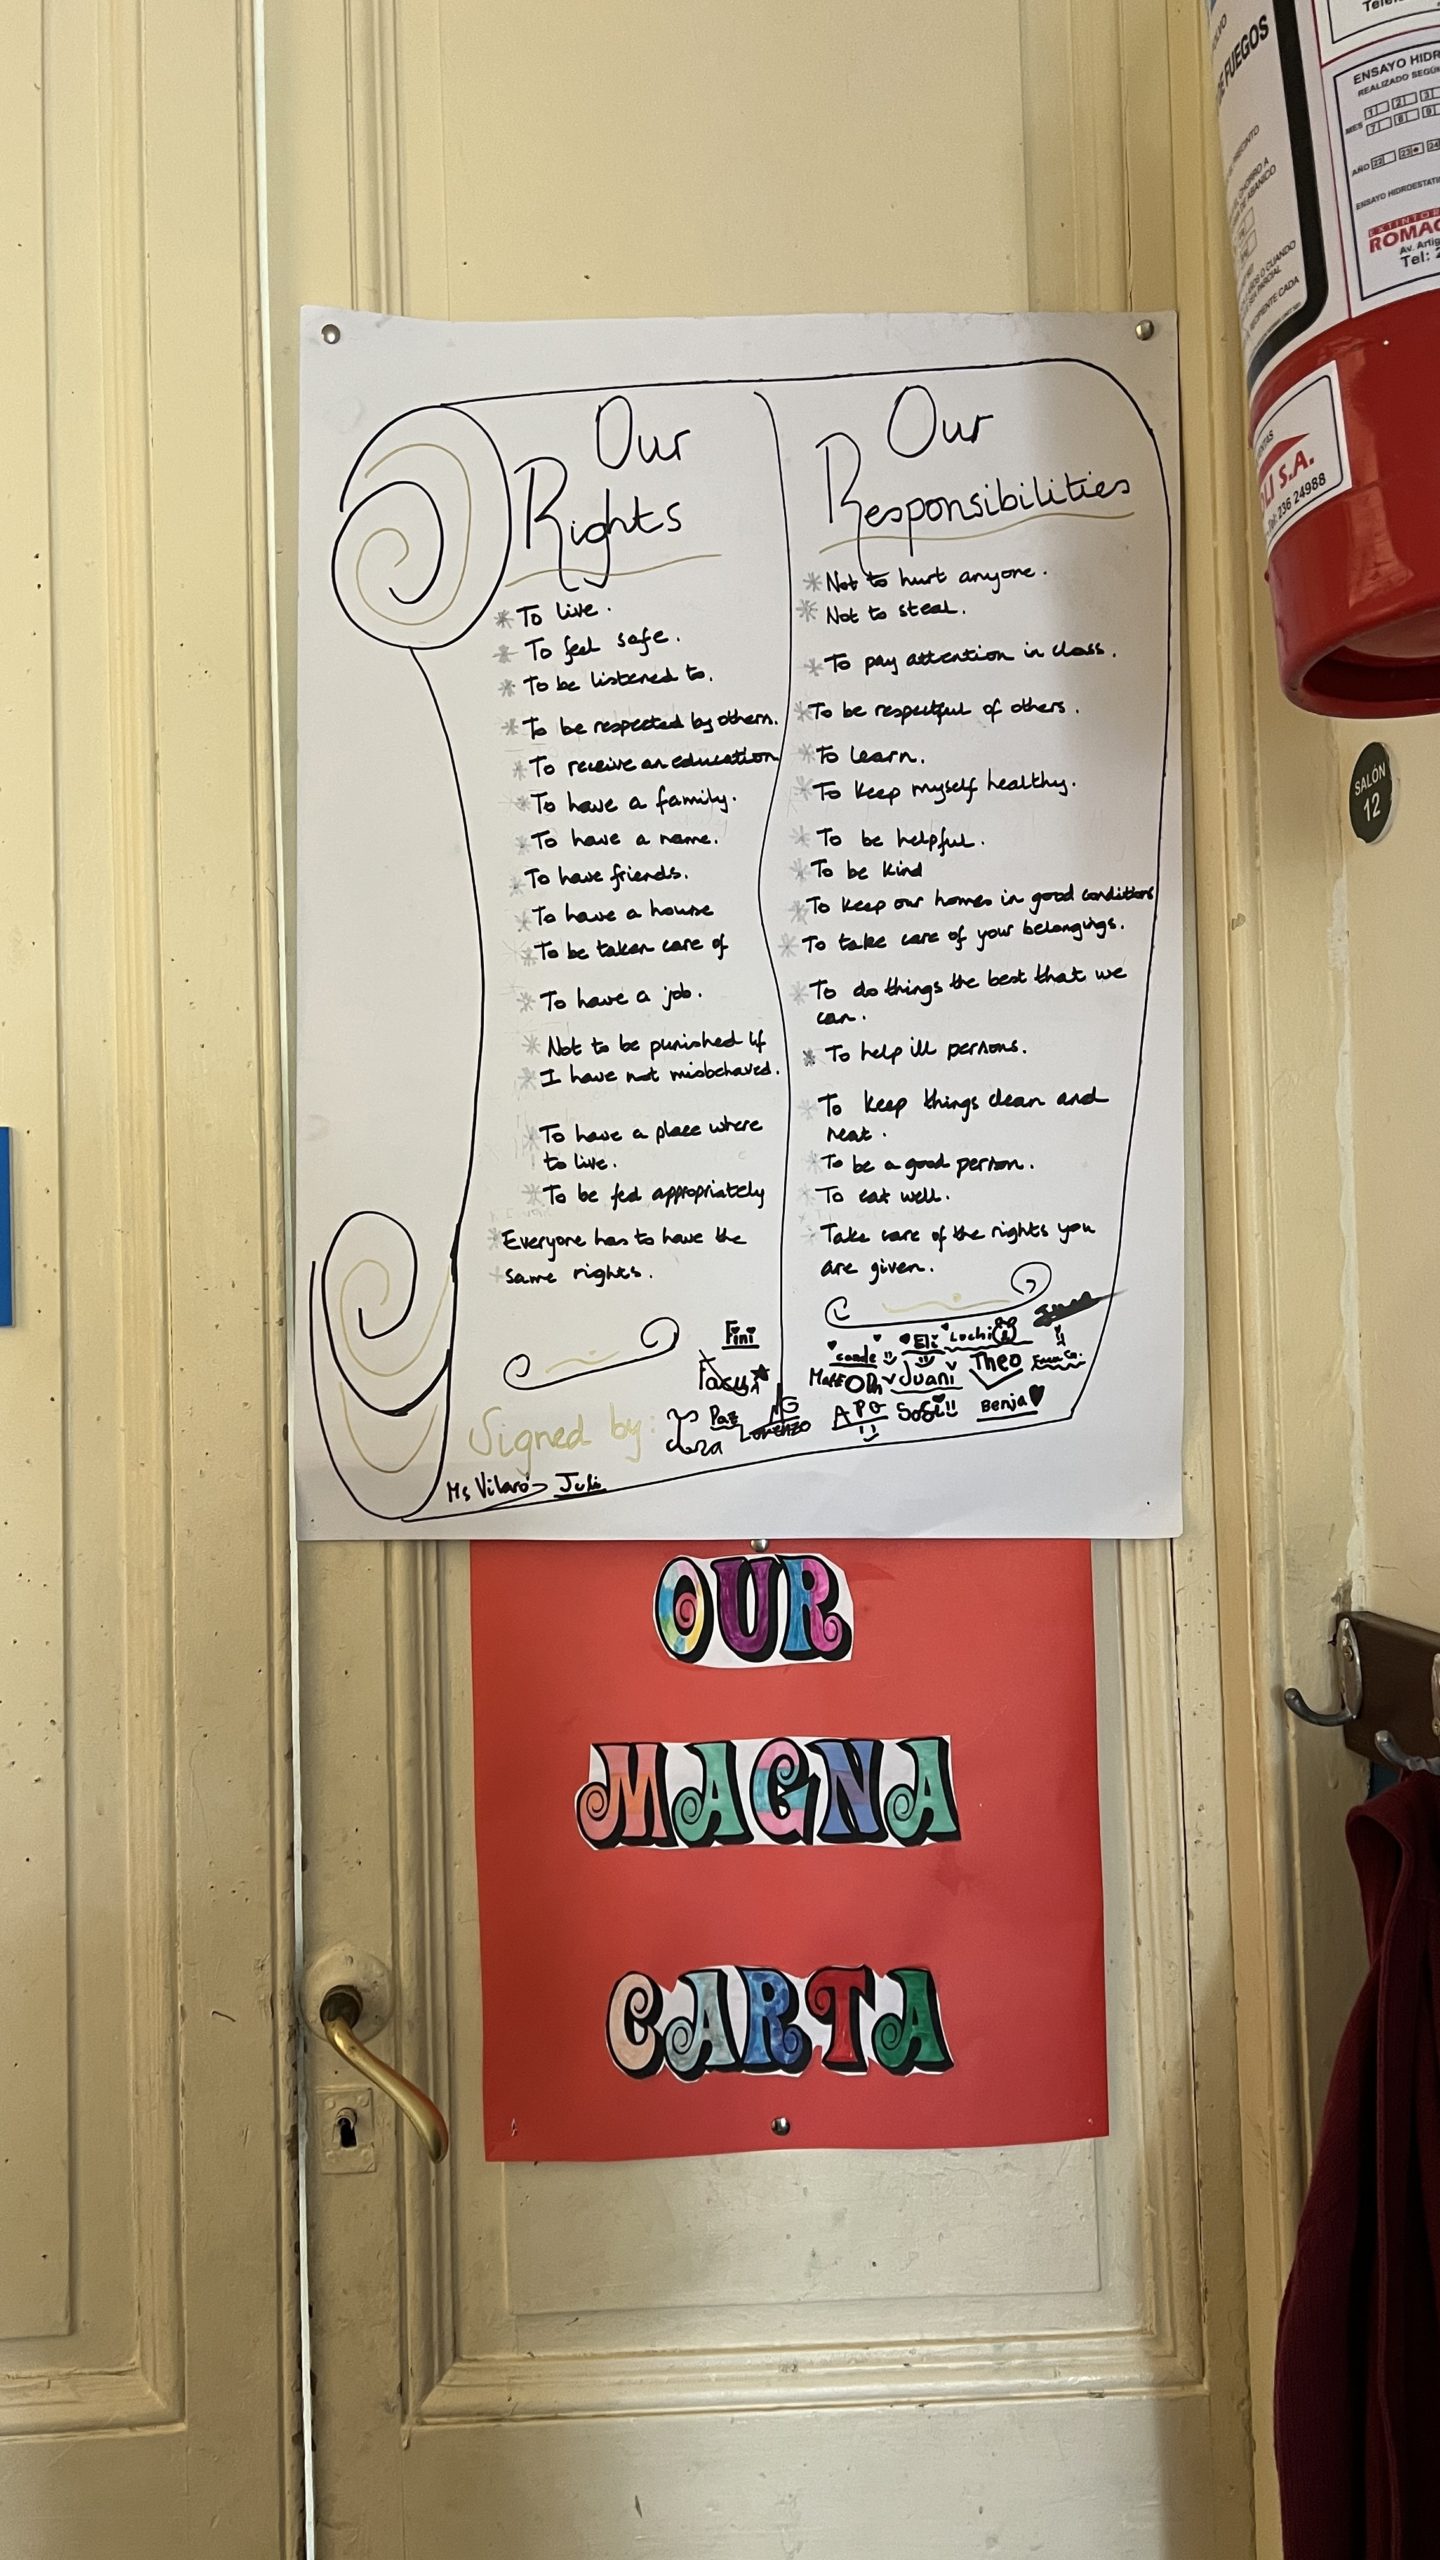 Our
Rights
* To live.
* To feel safe.
* To be listened to.
* To be respected by others.
* To receive an education
* To have a family.
* To have a name.
* To have friends.
* To have a house
* To be taken care of
* To have a job.
* Not to be punished if
* I have not misbehaved.
* To have a place where
to live.
* To be fed appropriately
* Everyone has to have the
* same rights.
Our
Responsibilities
* Not to hurt anyone.
* Not to steal.
* To pay attention in class.
* To be respectful of others.
* To learn.
* To keep myself healthy.
* To be helpful.
* To be kind
* To keep our homes in good conditions
* To take care of your belongings.
* To do things the best that we
can.
* To help ill persons.
* To keep things clean and
neat.
* To be a good person.
* To eat well.
* Take care of the rights you
are given.
Signed by:
Fini
Eli Luchi
Conde
Juani Theo
Paz Lorenzo APG Sofi!! Benja
Clara
Ms Vilaró Juli
OUR
MAGNA
CARTA
DE FUEGOS
ENSAYO HIDR
REALIZADO SEGÚN
MES 1 2 3
7 8 9
AÑO 22 23 24
ENSAYO HIDROESTATI
EXTINTOR
ROMAC
Av. Artig
Tel: 2
LI S.A.
Tel: 236 24988
SALÓN
12